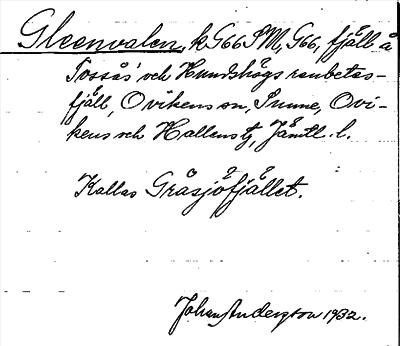 Gleenvalen, k G66 SM, G66, fjäll å
Tossås' och Hundshögs renbetes-
fjäll, Ovikens sn, Sunne, Ovi-
kens och Hallens tg, Jämtl. l.
Kallas Gråsjöfjället.
Johan Anderzson 1932.